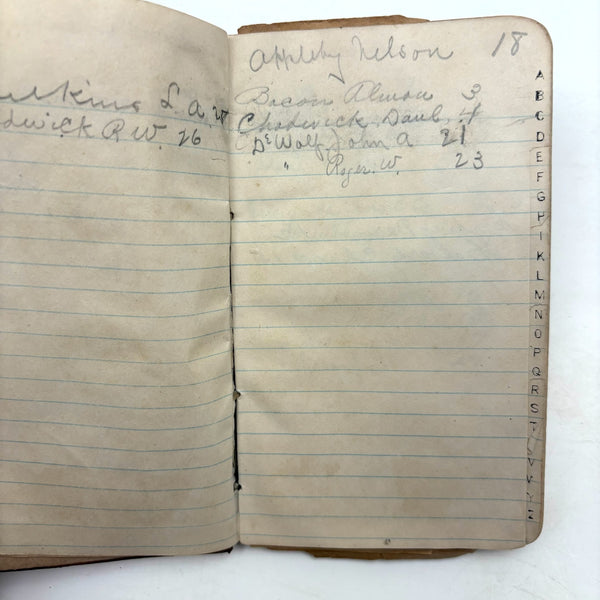 L. A. 27
dwick R. W. 26
Appleby Nelson 18
Bacon Almon 3
Chadwick Danl. 4
De Wolf John A 21
" Roger. W. 23
A
B
C
D
E
F
G
H
I
K
L
M
N
O
P
Q
R
S
T